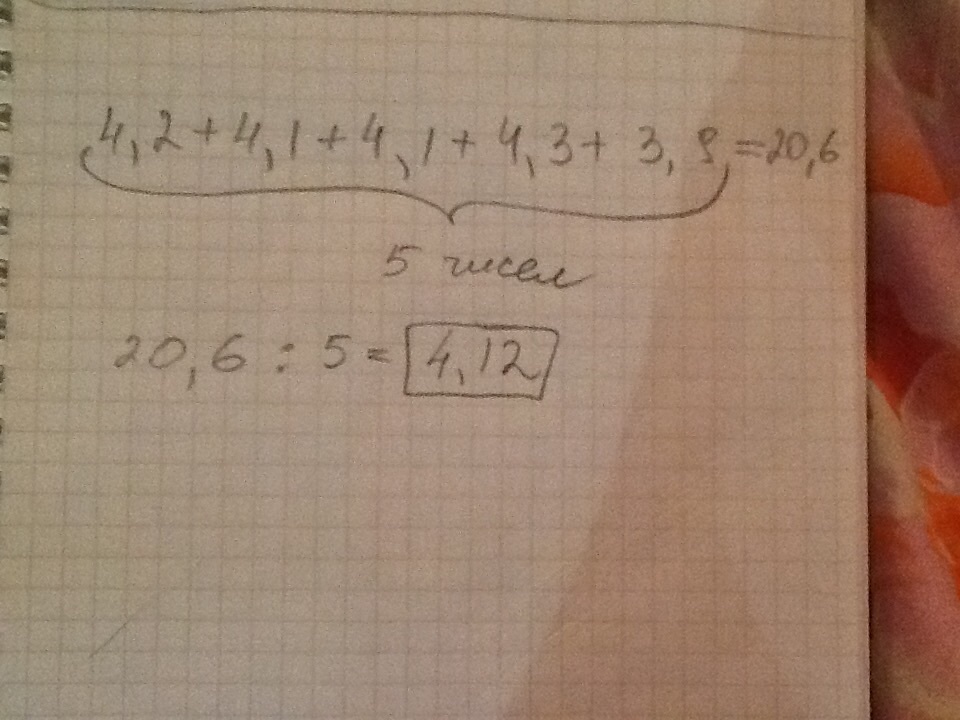 4,2+4,1+4,1+4,3+3,9=20,6
5 чисел
20,6:5=4,12